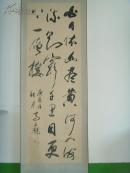 白日依山盡黄河入海
流欲窮千里目更
上一層樓